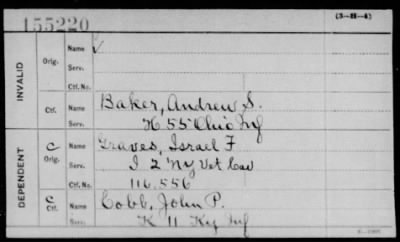 155220
(3-H-4)
INVALID
Orig. Name
Serv.
Ctf. No.
Ctf. Name Baker, Andrew S.
Serv. H 55 Ohio Inf
DEPENDENT
C Orig. Name Graves, Israel F
Serv. I 2 NY Vet Cav
Ctf. No. 116.556
C Ctf. Name Cobb, John P.
Serv. K 11 Ky Inf